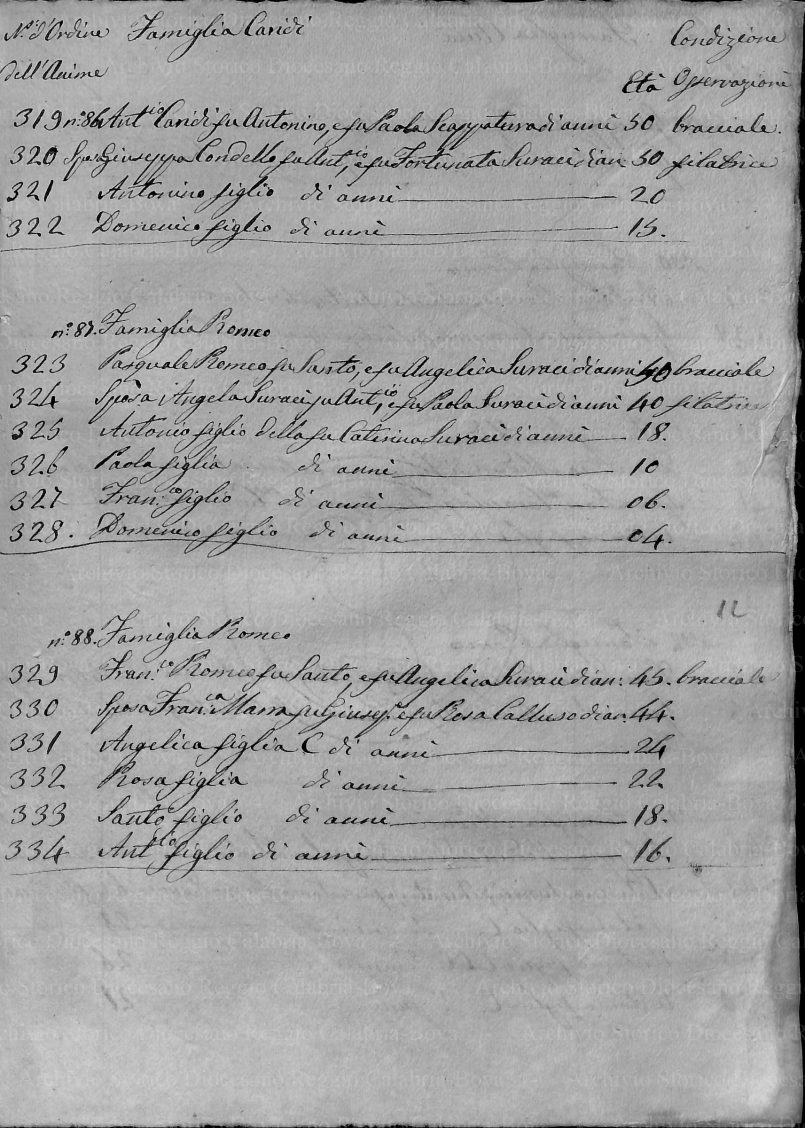 N.º d'Ordine Famiglia Caridi Condizione
dell'Anime Età Osservazioni
319 nº: 86. Ant.io Caridi fu Antonino, e fu Paola Scappatura di anni 50 bracciale.
320 Spo: Giuseppa Condello fu Ant.io, e fu Fortunata Suraci di an: 50 filatrice
321 Antonino figlio di anni 20
322 Domenico figlio di anni 15.
nº: 87. Famiglia Romeo
323 Pasquale Romeo fu Santo, e fu Angelica Suraci di anni 40 bracciale
324 Sposa Angela Suraci fu Ant.io, e fu Paola Suraci di anni 40 filatrice
325 Antonio figlio della fu Caterina Suraci di anni 18.
326 Paola figlia di anni 10
327 Fran.co figlio di anni 06.
328. Domenico figlio di anni 04.
12
nº: 88. Famiglia Romeo
329 Fran.co Romeo fu Santo, e fu Angelica Suraci di an: 45. bracciale
330 Sposa Fran.ca Marra fu Giusep.e e fu Rosa Calluso di an: 44.
331 Angelica figlia C di anni 24
332 Rosa figlia di anni 22
333 Santo figlio di anni 18.
334 Ant.io figlio di anni 16.